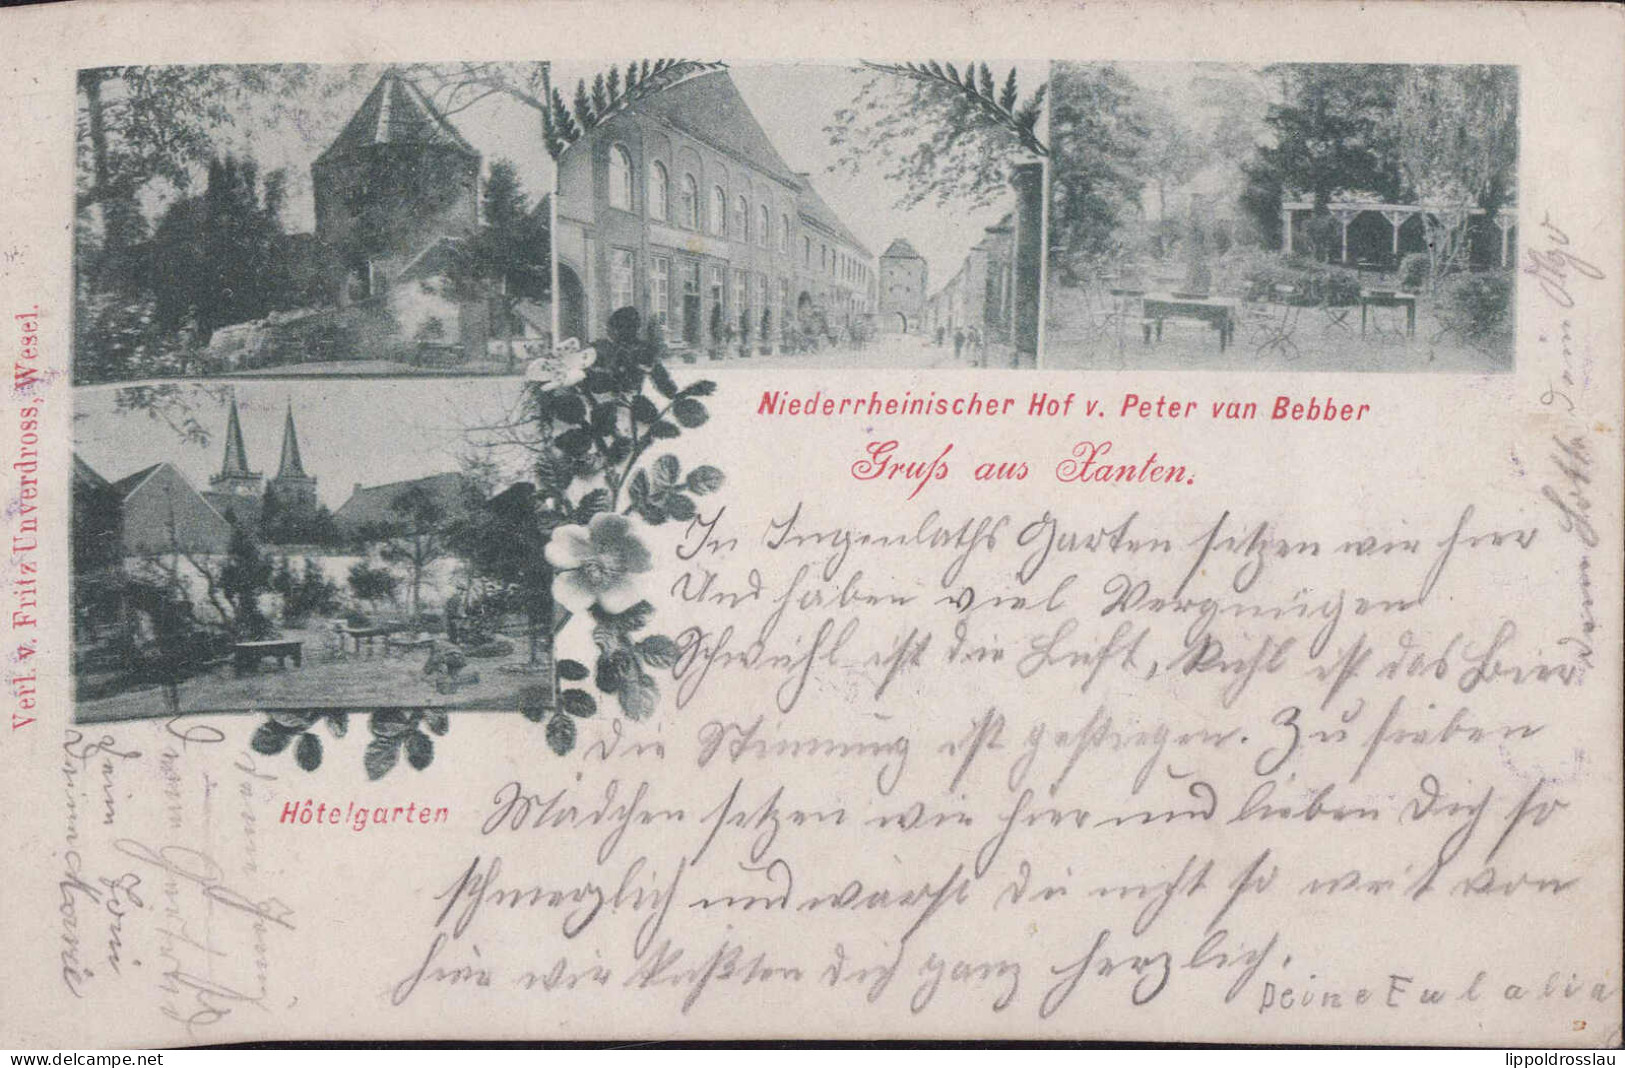 Verl. v. Fritz Unverdross, Wesel.
Niederrheinischer Hof v. Peter van Bebber
Gruß aus Xanten.
Hôtelgarten
In Ingenlaths Garten sitzen wir hier
Und haben viel Vergnügen
Schwühl ist die Luft, Kühl ist das Bier
die Stimmung ist gestiegen. Zu sieben
Mädchen sitzen wir hier und lieben Dich so
schmerzlich und wärst du nicht so weit von
hier wir küßten dich ganz herzlich.
Deine Eulalia
Deine
Dein
Deine